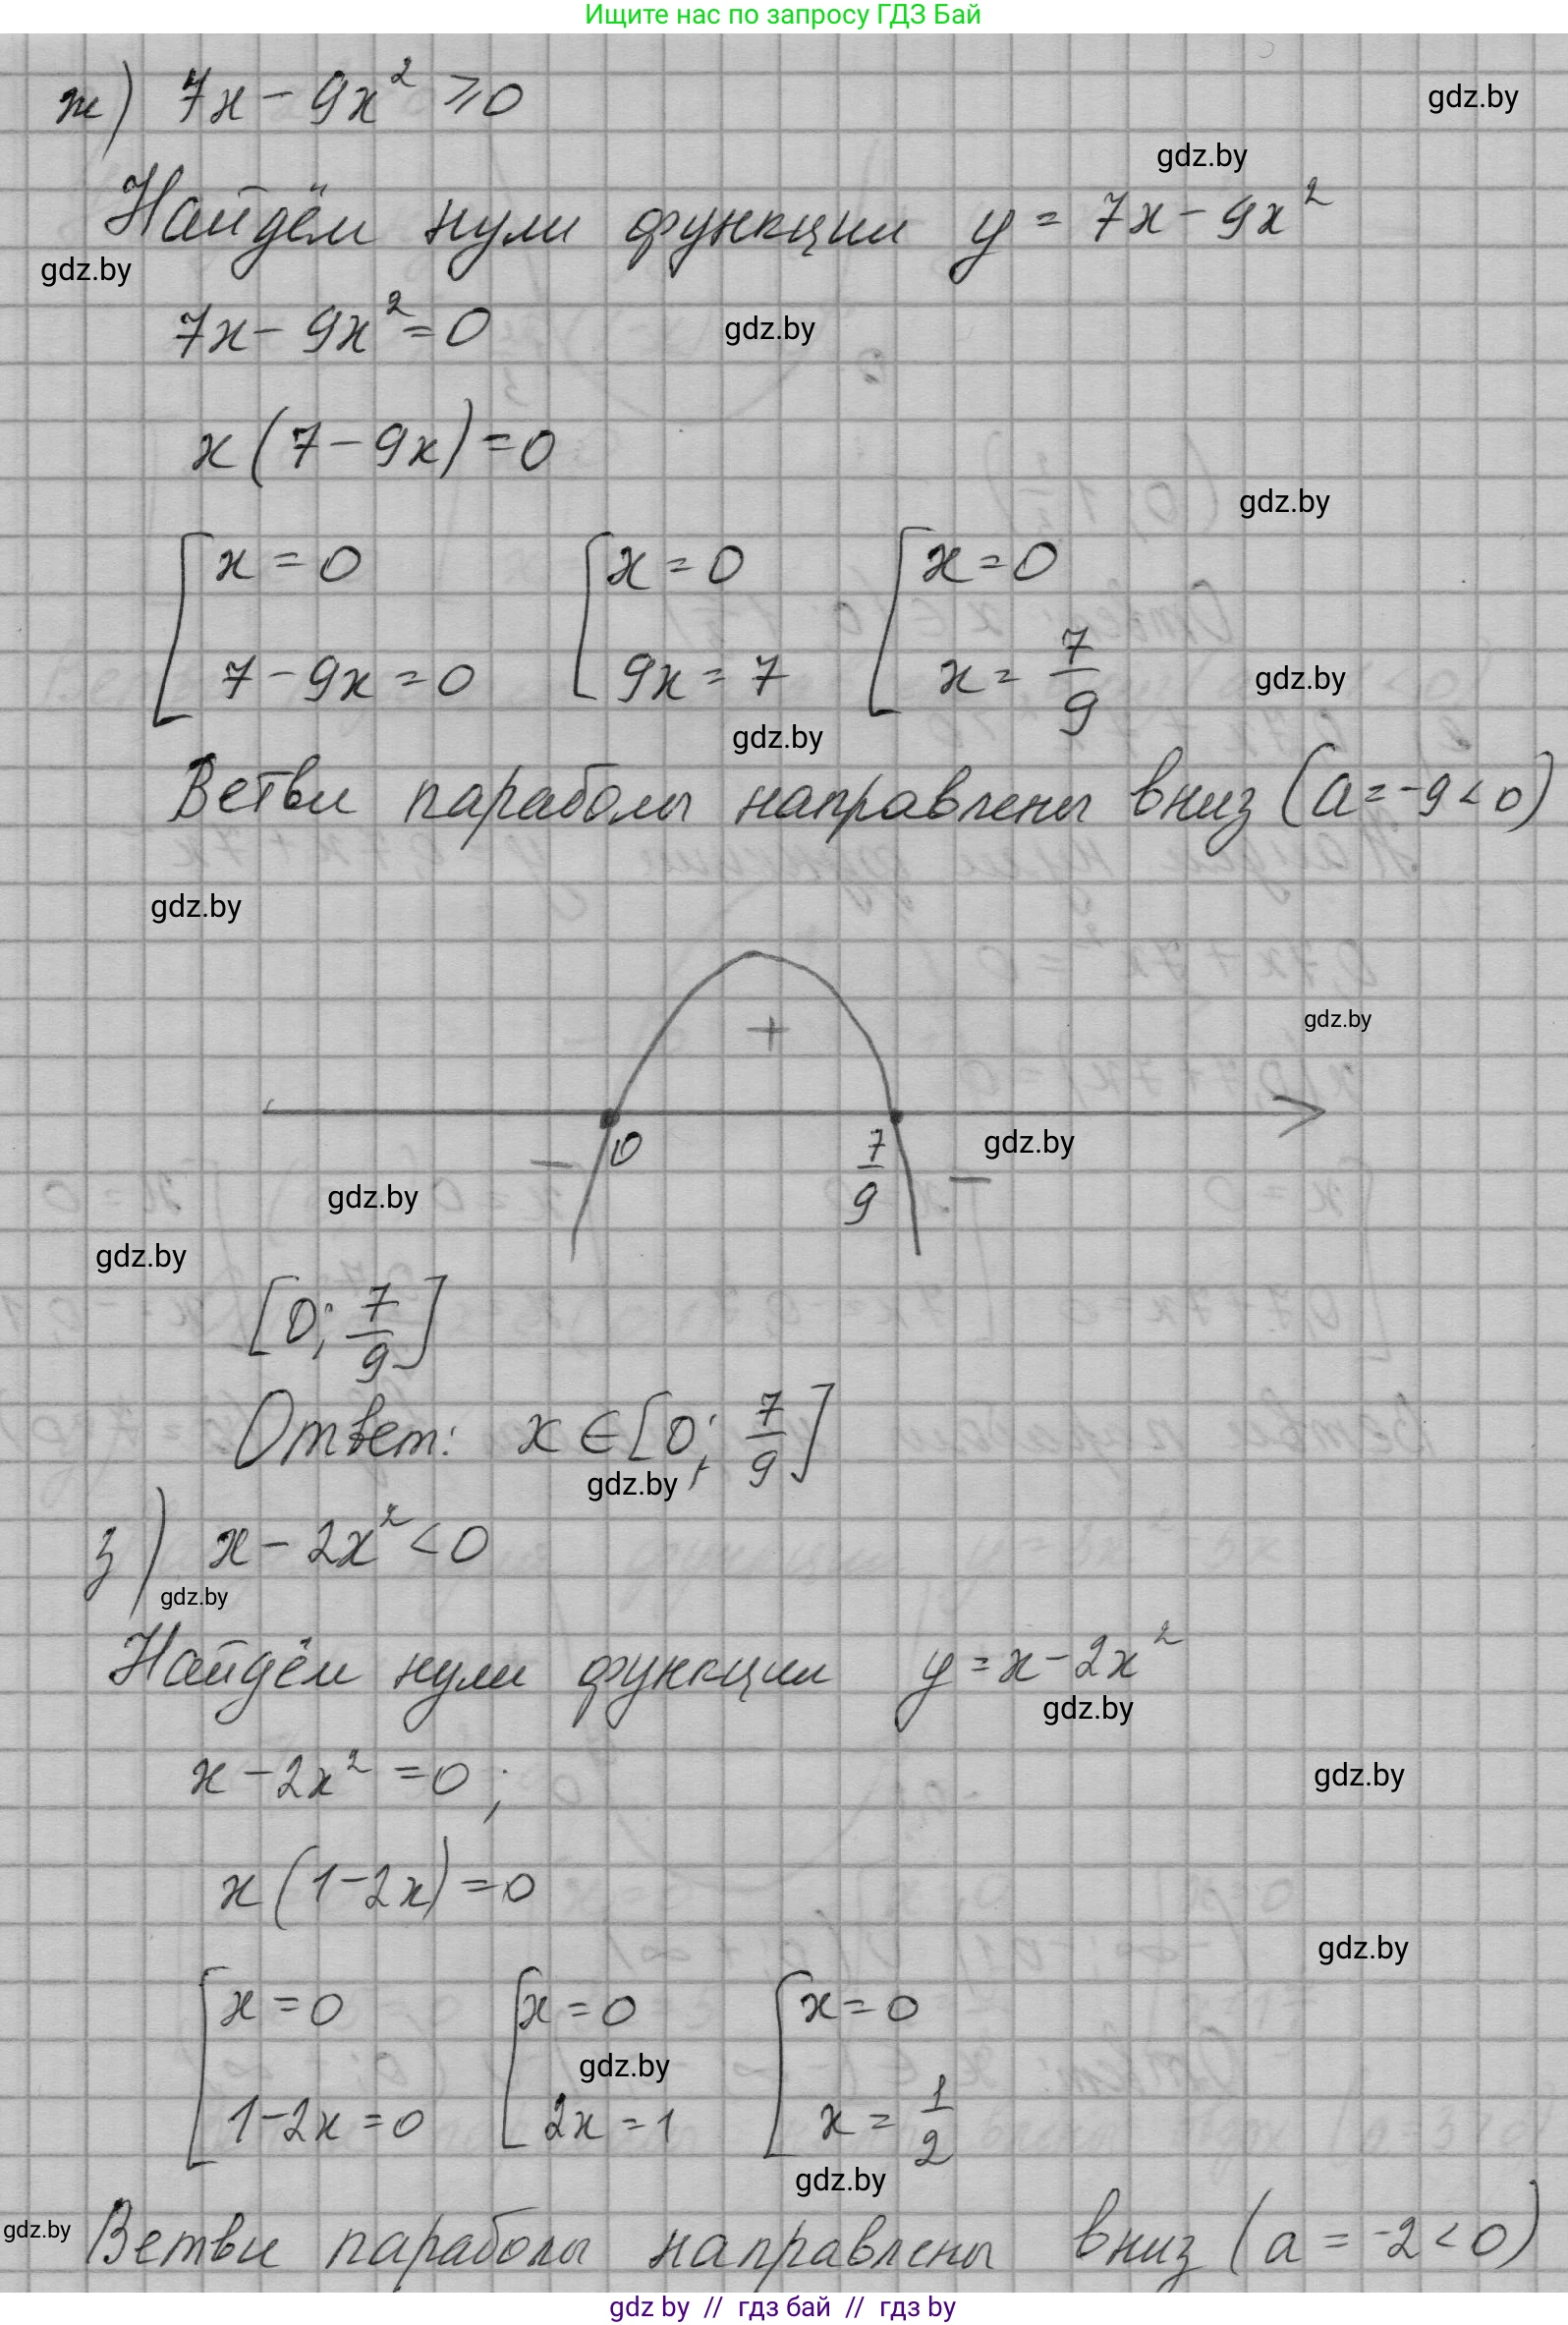 Ищите нас по запросу ГДЗ Бай
ж) 7x - 9x² ⩾ 0
gdz.by
gdz.by
Найдём нули функции y = 7x - 9x²
gdz.by
7x - 9x² = 0
gdz.by
x(7 - 9x) = 0
gdz.by
[x = 0 [x = 0 [x = 0
7 - 9x = 0 9x = 7 x = 7/9
gdz.by
gdz.by
Ветви параболы направлены вниз (a = -9 < 0)
gdz.by
gdz.by
+
0 7/9
gdz.by
- -
gdz.by
gdz.by
[0; 7/9]
Ответ: x ∈ [0; 7/9]
gdz.by
з) x - 2x² < 0
gdz.by
Найдём нули функции y = x - 2x²
gdz.by
x - 2x² = 0;
gdz.by
x(1 - 2x) = 0
gdz.by
[x = 0 [x = 0 [x = 0
gdz.by
1 - 2x = 0 2x = 1 x = 1/2
gdz.by
gdz.by
Ветви параболы направлены вниз (a = -2 < 0)
gdz by // гдз бай // гдз by